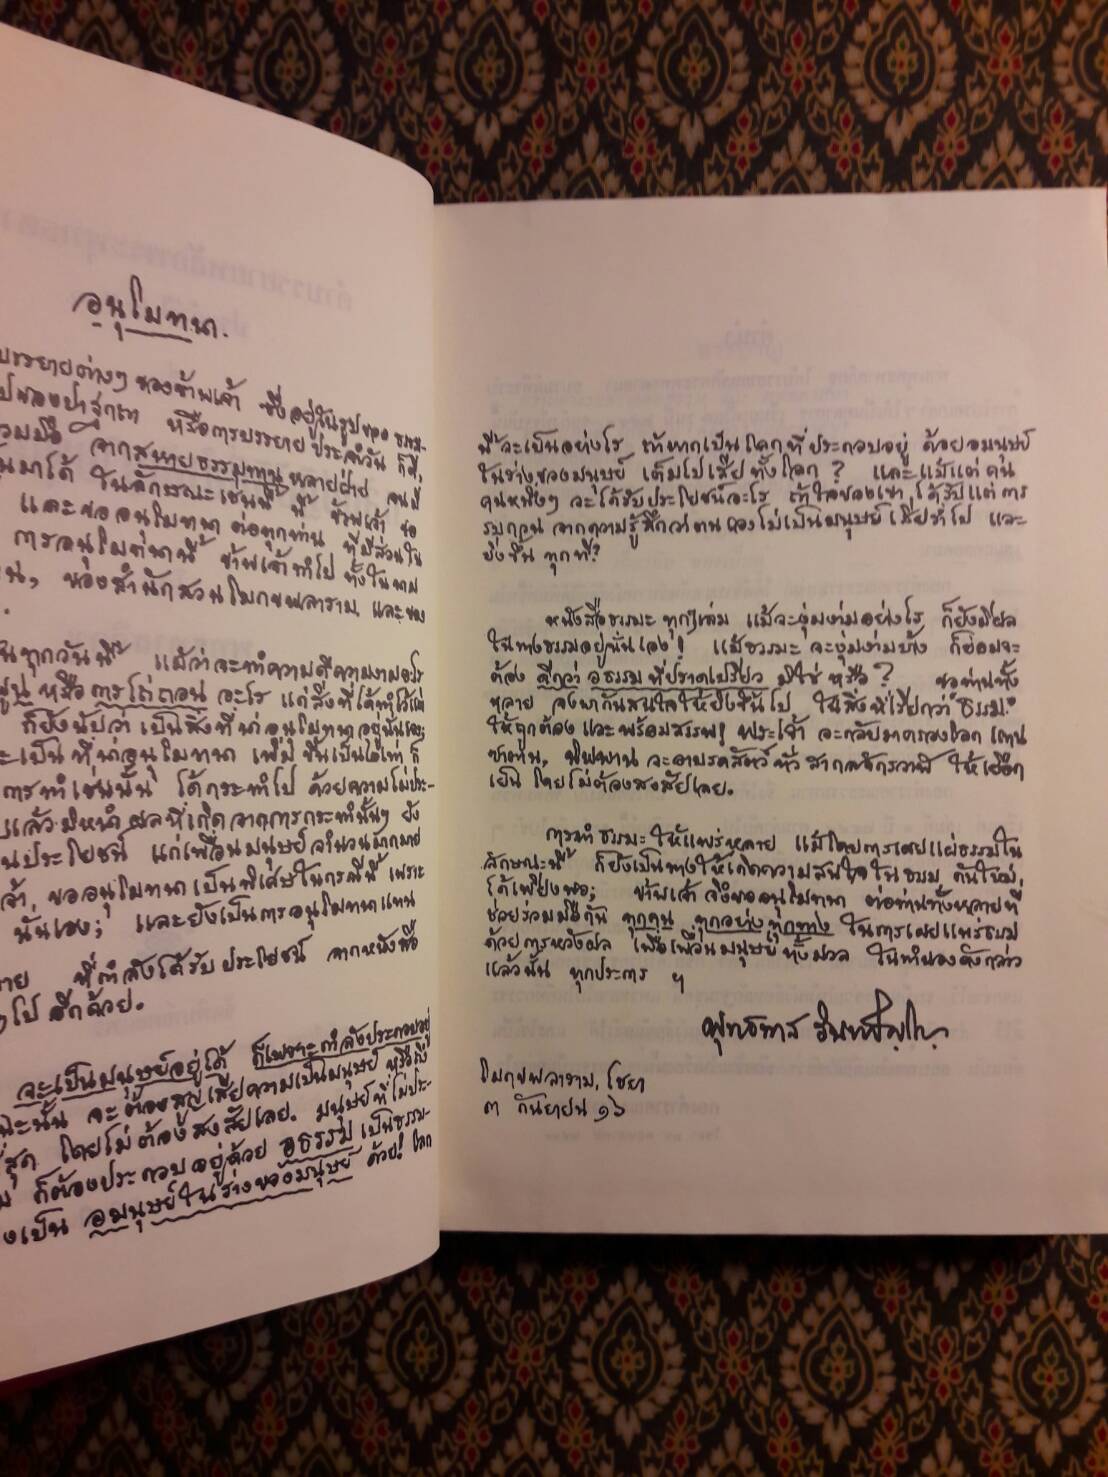 อนุโมทนา.
บรรยายต่างๆ ของข้าพเจ้า ซึ่งอยู่ในรูปของ ธรรม-
ปของปาฐกถา หรือการบรรยาย ประจำวัน ก็ดี,
วมมือ จากสหายธรรมทาน หลายฝ่าย จนมี
นมาได้ ในลักษณะเช่นนี้ นี้ ข้าพเจ้า ขอ
และขออนุโมทนา ต่อทุกท่าน ที่มีส่วนใน
การอนุโมทนานี้ ข้าพเจ้าทำไป ทั้งในนาม
น, ของสำนักสวนโมกขพลาราม และของ
นทุกวันนี้ แม้ว่าจะทำความดีความงามอะไร
หรือการไถ่ถอน อะไร แต่สิ่งที่ได้ทำไว้แต่
ก็ยังนับว่า เป็นสิ่งที่น่าอนุโมทนา อยู่นั่นเอง;
ะเป็นที่น่าอนุโมทนา เพิ่มขึ้นเป็นไหนๆ ก็
การทำเช่นนั้น ได้กระทำไป ด้วยความไม่ประ-
แล้วมิหนำ ผลที่เกิดจากการกระทำนั้นๆ ยัง
นประโยชน์ แก่เพื่อนมนุษย์จำนวนมากมาย
จ้า, ขออนุโมทนาเป็นพิเศษในกรณีนี้ เพราะ
นั้นเอง; และยังเป็นการอนุโมทนาแทน
าย ที่กำลังได้รับ ประโยชน์ จากหนังสือ
ไป อีกด้วย.
จะเป็นมนุษย์อยู่ได้ ก็เพราะกำลังประกอบอยู่
นะนั้น จะต้องสูญเสียความเป็นมนุษย์ หรือถึง
สุด โดยไม่ต้องสงสัยเลย. มนุษย์ที่ไม่ประ-
ม ก็ต้องประกอบอยู่ด้วย อธรรม เป็นธรรม-
งเป็น อมนุษย์ในร่างของมนุษย์ ด้วย! โลก
นี้จะเป็นอย่างไร ถ้าหากเป็นโลกที่ประกอบอยู่ ด้วยอมนุษย์
ในร่างของมนุษย์ เต็มไปเสียทั้งโลก? และแม้แต่ คน
คนหนึ่งๆ จะได้รับประโยชน์อะไร ถ้าใจของเขา ได้รับแต่การ
รบกวน จากความรู้สึกว่าตนเองไม่เป็นมนุษย์ เสียทำไป และ
ยิ่งขึ้น ทุกที?
หนังสือธรรมะ ทุกๆเล่ม แม้จะงุ่มง่ามอย่างไร ก็ยังมีผล
ในทางธรรมอยู่นั่นเอง! แม้ธรรมะ จะงุ่มง่ามบ้าง ก็ย่อมจะ
ต้อง ดีกว่า อธรรม ที่ปราดเปรียว มิใช่ หรือ? ขอท่านทั้ง
หลาย จงพากันสนใจให้ยิ่งขึ้นไป ในสิ่งที่เรียกว่า "ธรรม"
ให้ถูกต้อง และพร้อมสรรพ! พระเจ้า จะกลับมาครองโลก แทน
ซาตาน, นิพพาน จะอาบรดสัตว์ ทั่ว สากลจักรวาฬ ให้เยือก
เย็น โดยไม่ต้องสงสัยเลย.
การทำ ธรรมะ ให้แพร่หลาย แม้โดยการเผยแผ่ธรรมใน
ลักษณะนี้ ก็ยังเป็นทางให้เกิดความสนใจใน ธรรม กันใหม่,
ได้เพียงพอ; ข้าพเจ้า จึงขออนุโมทนา ต่อท่านทั้งหลายที่
ช่วยร่วมมือกัน ทุกคน ทุกอย่างทุกทาง ในการเผยแพร่ธรรม
ด้วยการหวังผล เพื่อเพื่อนมนุษย์ทั้งมวล ในทำนองดังกล่าว
แล้วนั้น ทุกประการ ฯ
พุทธทาส อินทปัญโญ
โมกขพลาราม, ไชยา
๓ กันยายน ๑๖